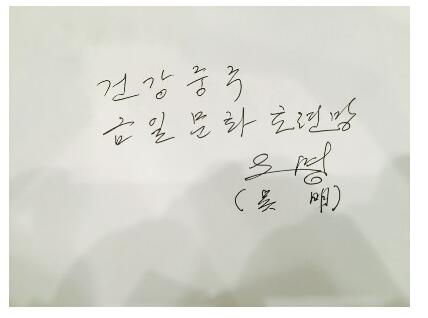 건강중국
금일문화호련망
오명
(吴 明)